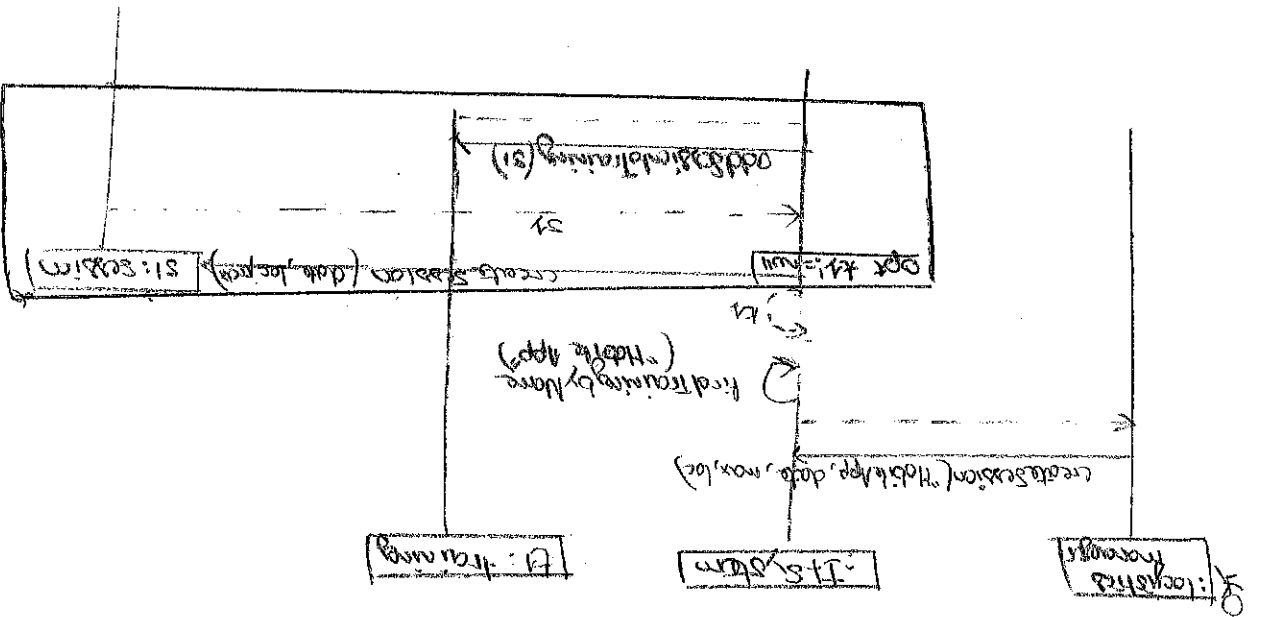 :logistics
manager
:ItSystem
t1: training
createSession("MobileApp, date, max, loc)
findTrainingbyName
("Mobile App")
t1
opt t1!=null
createSession (date, loc,
s1:session
s1
addSessiontoTraining (s1)